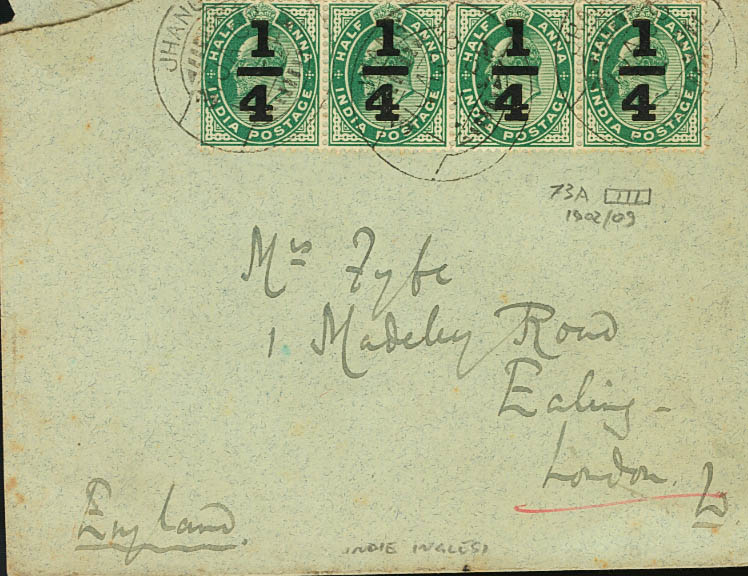 HALF ANNA HALF ANNA HALF ANNA HALF ANNA
1/4 1/4 1/4 1/4
INDIA POSTAGE INDIA POSTAGE INDIA POSTAGE INDIA POSTAGE
JHANG
73A
1902/09
Mrs Fybe
1 Madeley Road
Ealing -
London. W
England.
INDIE INGLESI